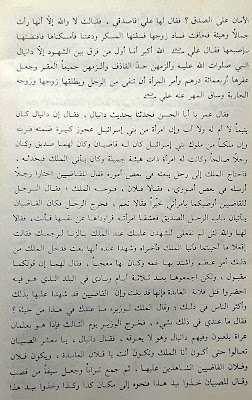 الأمان على الصدق؟ فقال لها علي فاصدقي، فقالت لا والله إلا أنها رأت
جمالاً وهيئة فخافت فساد زوجها فسقتها المسكر ودعتنا فأمسكناها فافتضتها
بإصبعها فقال علي الله أكبر أنا أول من فرق بين الشهود إلاّ دانيال
النبي صلوات الله عليه وألزمهن حدّ القاذف وألزمهن جميعاً العقر وجعل
عقرها أربعمائة درهم وأمر المرأة أن تنفى من الرجل ويطلقها زوجها وزوجه
الجارية وساق المهر عنه علي
فقال عمر يا أبا الحسن فحدثنا حديث دانيال، فقال إن دانيال كان
يتيماً لا أم له ولا أب وإن امرأة من بني إسرائيل عجوز كبيرة ضمته فربته
وإن ملكاً من ملوك بني إسرائيل كان له قاضيان وكان لهما صديق وكان
رجلاً صالحاً وكانت له امرأة ذات هيئة جميلة وكان يأتي الملك فيحدثه،
فاحتاج الملك إلى رجل يبعثه في بعض أموره فقال للقاضيين اختارا رجلاً
أرسله في بعض أموري، فقالا فلان، فوجهه الملك، فقال الرجل
للقاضيين أوصيكما بامرأتي خيراً فقالا نعم، فخرج الرجل فكان القاضيان
يأتيان باب الرجل الصديق فعشقا امرأته فراوداها عن نفسها فأبت، فقالا
لها والله لئن لم تفعلي لنشهدن عليك عند الملك بالزنا ليرجمك فقالت
إفعلا ما أحببتما فأتيا الملك فأخبراه وشهدا عنده أنها بغت فدخل الملك من
ذلك أمر عظيم واشتد بها غمه وكان بها معجباً، فقال لهما إن قولكما
مقبول، ولكن ارجموها بعد ثلاثة أيام ونادى في البلد الذي هو فيه
احضروا قتل فلانة العابدة فإنها قد بغت وإن القاضيين قد شهدا عليها بذلك
وأكثر الناس في ذلك، وقال الملك لوزيره ما عندك في هذا من حيلة؟
فقال ما عندي في ذلك شيء، فخرج الوزير يوم الثالث فإذا هو بغلمان
عراة يلعبون وفيهم دانيال وهو لا يعرفه، فقال دانيال، يا معشر الصبيان
تعالوا حتى أكون أنا الملك وتكون أنت يا فلان العابدة، ويكون فلان
وفلان القاضيين الشاهدين عليها، ثم جمع تراباً وجعل سيفاً من قصب
وقال للصبيان خذوا بيد هذا فنحوه إلى مكان كذا وكذا وخذوا بيد هذا